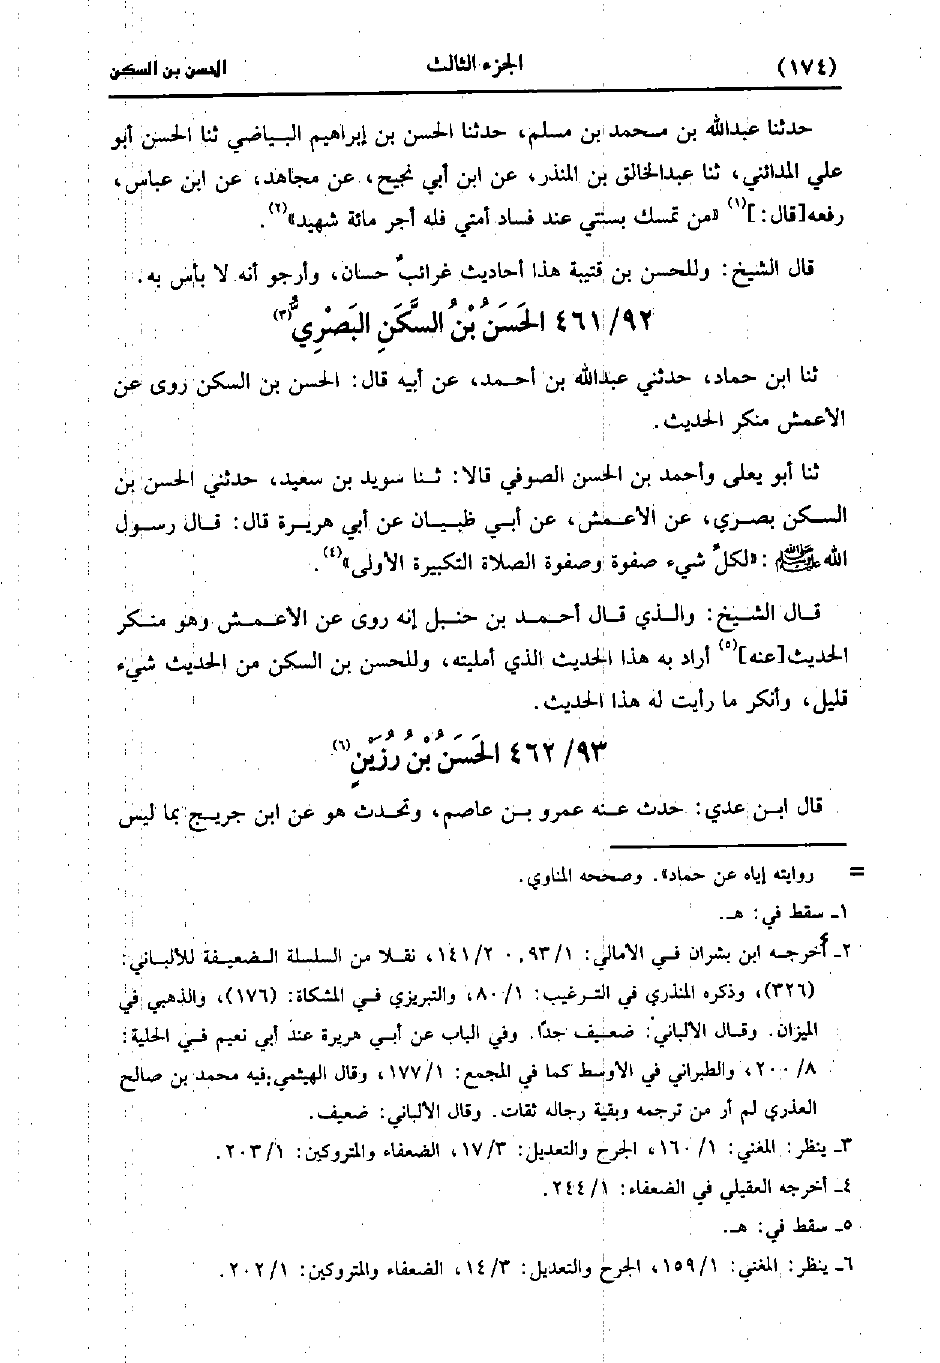 (١٧٤) الجزء الثالث الحسن بن السكن
حدثنا عبدالله بن محمد بن مسلم، حدثنا الحسن بن إبراهيم البياضي ثنا الحسن أبو
علي المدائني، ثنا عبدالخالق بن المنذر، عن ابن أبي نجيح، عن مجاهد، عن ابن عباس،
رفعه[قال:](١) «من تمسك بسنتي عند فساد أمتي فله أجر مائة شهيد»(٢).
قال الشيخ: وللحسن بن قتيبة هذا أحاديث غرائبٌ حسان، وأرجو أنه لا بأس به.
٩٢/ ٤٦١ الحَسَنُ بْنُ السَّكَنِ البَصْرِيُّ(٣)
ثنا ابن حماد، حدثني عبدالله بن أحمد، عن أبيه قال: الحسن بن السكن روى عن
الأعمش منكر الحديث.
ثنا أبو يعلى وأحمد بن الحسن الصوفي قالا: ثنا سويد بن سعيد، حدثني الحسن بن
السكن بصري، عن الأعمش، عن أبي ظبيان عن أبي هريرة قال: قال رسول
الله ﷺ: «لكلِّ شيء صفوة وصفوة الصلاة التكبيرة الأولى»(٤).
قال الشيخ: والذي قال أحمد بن حنبل إنه روى عن الأعمش وهو منكر
الحديث[عنه](٥) أراد به هذا الحديث الذي أمليته، وللحسن بن السكن من الحديث شيء
قليل، وأنكر ما رأيت له هذا الحديث.
٩٣/ ٤٦٢ الحَسَنُ بْنُ رُزَيْنٍ(٦)
قال ابن عدي: حدث عنه عمرو بن عاصم، وتحدث هو عن ابن جريج بما ليس
= روايته إياه عن حماد». وصححه المناوي.
١ـ سقط في: هـ.
٢ـ أخرجه ابن بشران في الأمالي: ٩٣/١، ١٤١/٢، نقلا من السلسلة الضعيفة للألباني:
(٣٢٦)، وذكره المنذري في الترغيب: ٨٠/١، والتبريزي في المشكاة: (١٧٦)، والذهبي في
الميزان. وقال الألباني: ضعيف جدًا. وفي الباب عن أبي هريرة عند أبي نعيم في الحلية:
٢٠٠/٨، والطبراني في الأوسط كما في المجمع: ١٧٧/١، وقال الهيثمي:فيه محمد بن صالح
العذري لم أر من ترجمه وبقية رجاله ثقات. وقال الألباني: ضعيف.
٣ـ ينظر: المغني: ١٦٠/١، الجرح والتعديل: ١٧/٣، الضعفاء والمتروكين: ٢٠٣/١.
٤ـ أخرجه العقيلي في الضعفاء: ٢٤٤/١.
٥ـ سقط في: هـ.
٦ـ ينظر: المغني: ١٥٩/١، الجرح والتعديل: ١٤/٣، الضعفاء والمتروكين: ٢٠٢/١.